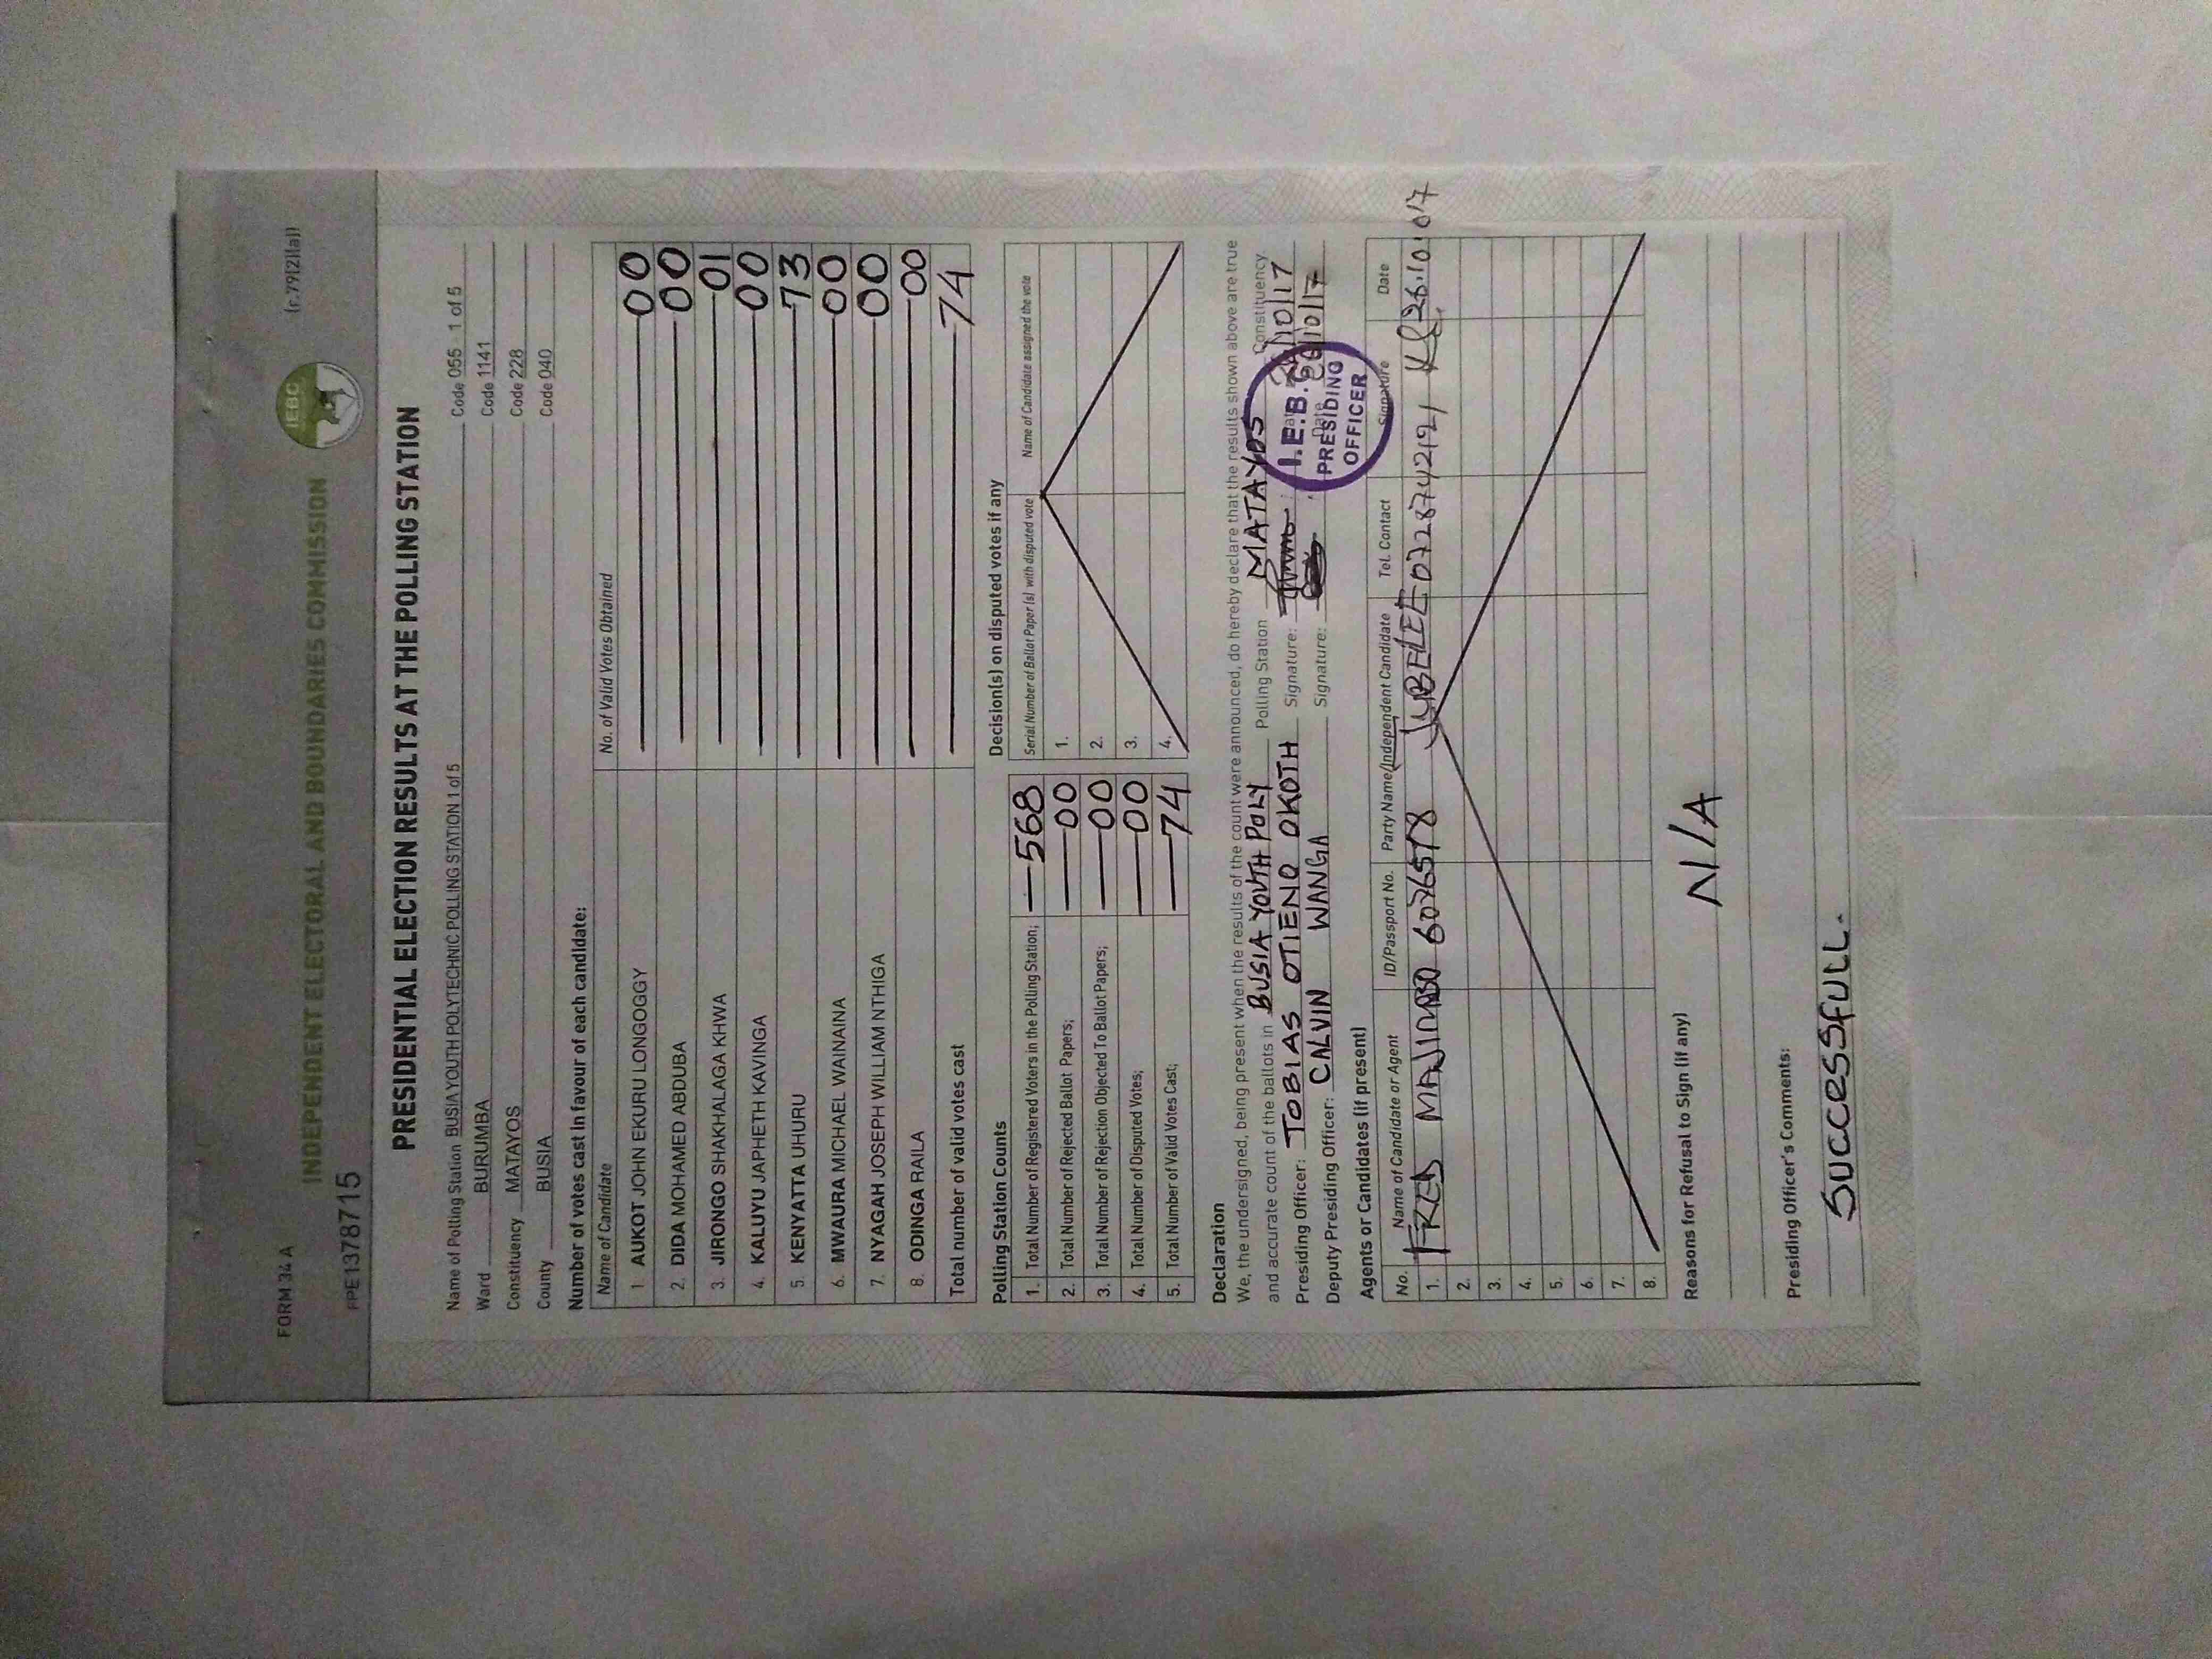 FORM 34 A
(r.79(2)(a))
IEBC
INDEPENDENT ELECTORAL AND BOUNDARIES COMMISSION
PPE1378715
PRESIDENTIAL ELECTION RESULTS AT THE POLLING STATION
Name of Polling Station BUSIA YOUTH POLYTECHNIC POLLING STATION 1 of 5 Code 055 1 of 5
Ward BURUMBA Code 1141
Constituency MATAYOS Code 228
County BUSIA Code 040
Number of votes cast in favour of each candidate:
Name of Candidate No. of Valid Votes Obtained
1 AUKOT JOHN EKURU LONGOGGY 00
2. DIDA MOHAMED ABDUBA 00
3. JIRONGO SHAKHALAGA KHWA 01
4. KALUYU JAPHETH KAVINGA 00
5. KENYATTA UHURU 73
6. MWAURA MICHAEL WAINAINA 00
7. NYAGAH JOSEPH WILLIAM NTHIGA 00
8. ODINGA RAILA 00
Total number of valid votes cast 74
Polling Station Counts
1. Total Number of Registered Voters in the Polling Station; 568
2. Total Number of Rejected Ballot Papers; 00
3. Total Number of Rejection Objected To Ballot Papers; 00
4. Total Number of Disputed Votes; 00
5. Total Number of Valid Votes Cast; 74
Decision(s) on disputed votes if any
Serial Number of Ballot Paper (s) with disputed vote Name of Candidate assigned the vote
1.
2.
3.
4.
Declaration
We, the undersigned, being present when the results of the count were announced, do hereby declare that the results shown above are true
and accurate count of the ballots in BUSIA YOUTH POLY Polling Station MATAYOS Constituency.
Presiding Officer: TOBIAS OTIENO OKOTH Signature: Date
Deputy Presiding Officer: CALVIN WANGA Signature: Date 26/10/17
I.E.B.C
PRESIDING
OFFICER
Agents or Candidates (if present)
No. Name of Candidate or Agent ID/Passport No. Party Name/Independent Candidate Tel. Contact Signature Date
1. FRED JUBELEE 0722874219
2.
3.
4.
5.
6.
7.
8.
Reasons for Refusal to Sign (if any)
N/A
Presiding Officer's Comments:
SUCCESSFULL.